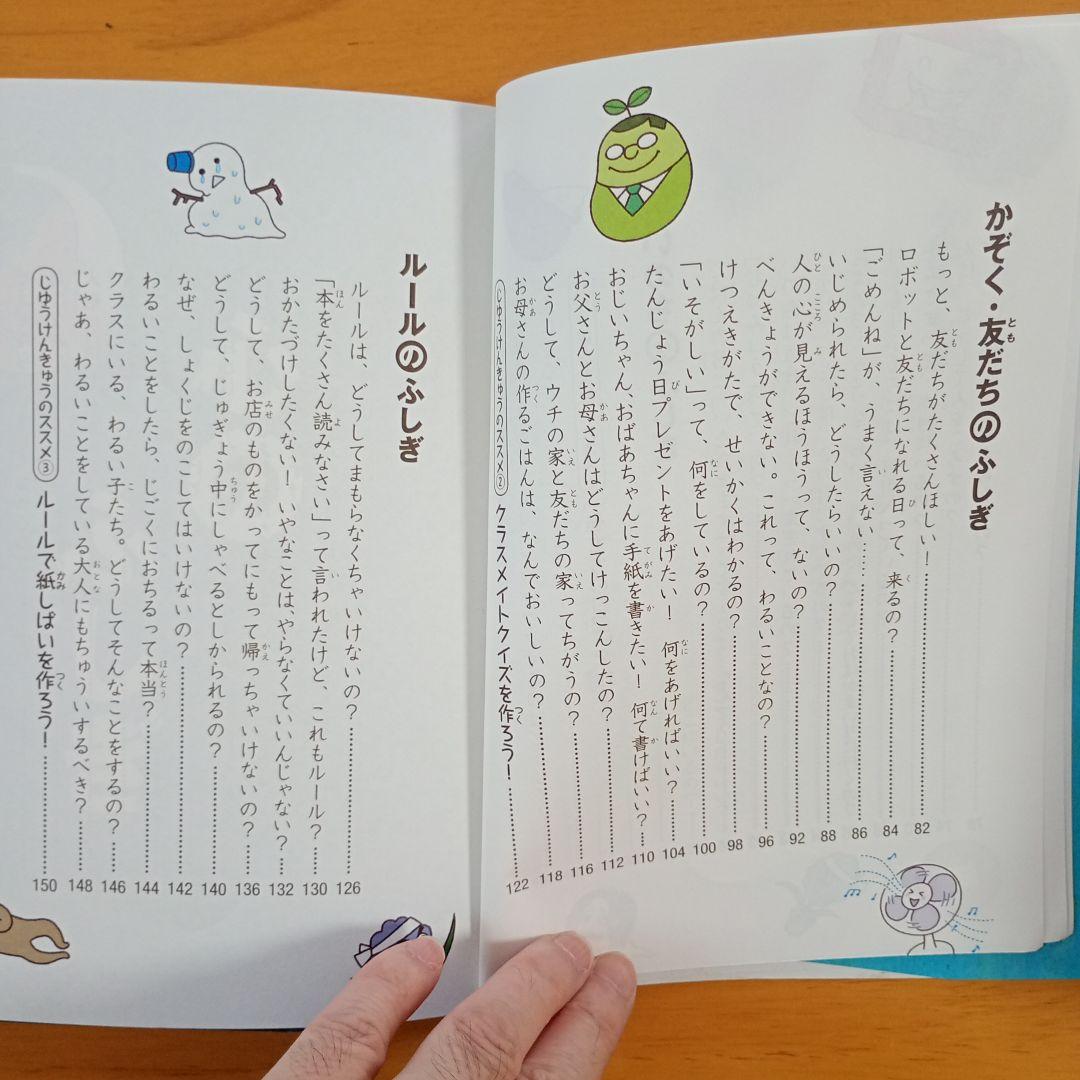 かぞく・友だちのふしぎ
もっと、友だちがたくさんほしい！……82
ロボットと友だちになれる日って、来るの？……84
「ごめんね」が、うまく言えない……86
いじめられたら、どうしたらいいの？……88
人の心が見えるほうほうって、ないの？……92
べんきょうができない。これって、わるいことなの？……96
けつえきがたで、せいかくはわかるの？……98
「いそがしい」って、何をしているの？……100
たんじょう日プレゼントをあげたい！　何をあげればいい？……104
おじいちゃん、おばあちゃんに手紙を書きたい！　何て書けばいい？……110
お父さんとお母さんはどうしてけっこんしたの？……112
どうして、ウチの家と友だちの家ってちがうの？……116
お母さんの作るごはんは、なんでおいしいの？……118
じゆうけんきゅうのススメ② クラスメイトクイズを作ろう！……122
ルールのふしぎ
ルールは、どうしてまもらなくちゃいけないの？……126
「本をたくさん読みなさい」って言われたけど、これもルール？……130
おかたづけしたくない！　いやなことは、やらなくていいんじゃない？……132
どうして、お店のものをかってにもって帰っちゃいけないの？……136
どうして、じゅぎょう中にしゃべるとしかられるの？……140
なぜ、しょくじをのこしてはいけないの？……142
わるいことをしたら、じごくにおちるって本当？……144
クラスにいる、わるい子たち。どうしてそんなことをするの？……146
じゃあ、わるいことをしている大人にもちゅういするべき？……148
じゆうけんきゅうのススメ③ ルールで紙しばいを作ろう！……150